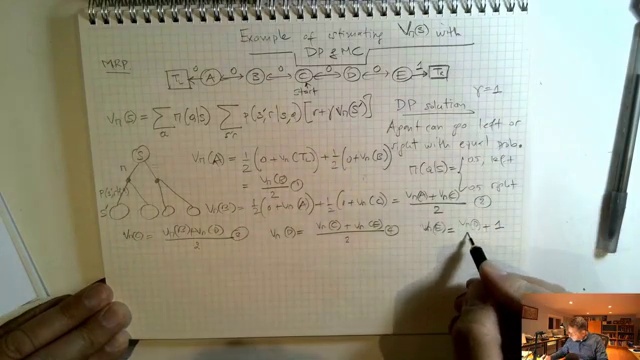 Example of estimating Vπ(s) with
DP & MC
MRP
TL 0 A 0 B 0 C 0 D 0 E 1 TR
start
Vπ(s) = Σa π(a|s) Σs'r p(s',r|s,a) [r+γVπ(s')]
DP solution γ=1
Agent can go left or
right with equal prob.
π(a|s)= { 0.5, left
0.5 right
S
π
s'
Vπ(A) = 1/2 (0+Vπ(TL)) + 1/2 (0+Vπ(B))
= Vπ(B)/2 ①
Vπ(B) = 1/2 (0+Vπ(A)) + 1/2 (0+Vπ(C)) =
2 ②
Vπ(C) = 2 ③
Vπ(D) = Vπ(C) + Vπ(E) / 2 ④
Vπ(E) = Vπ(D) + 1